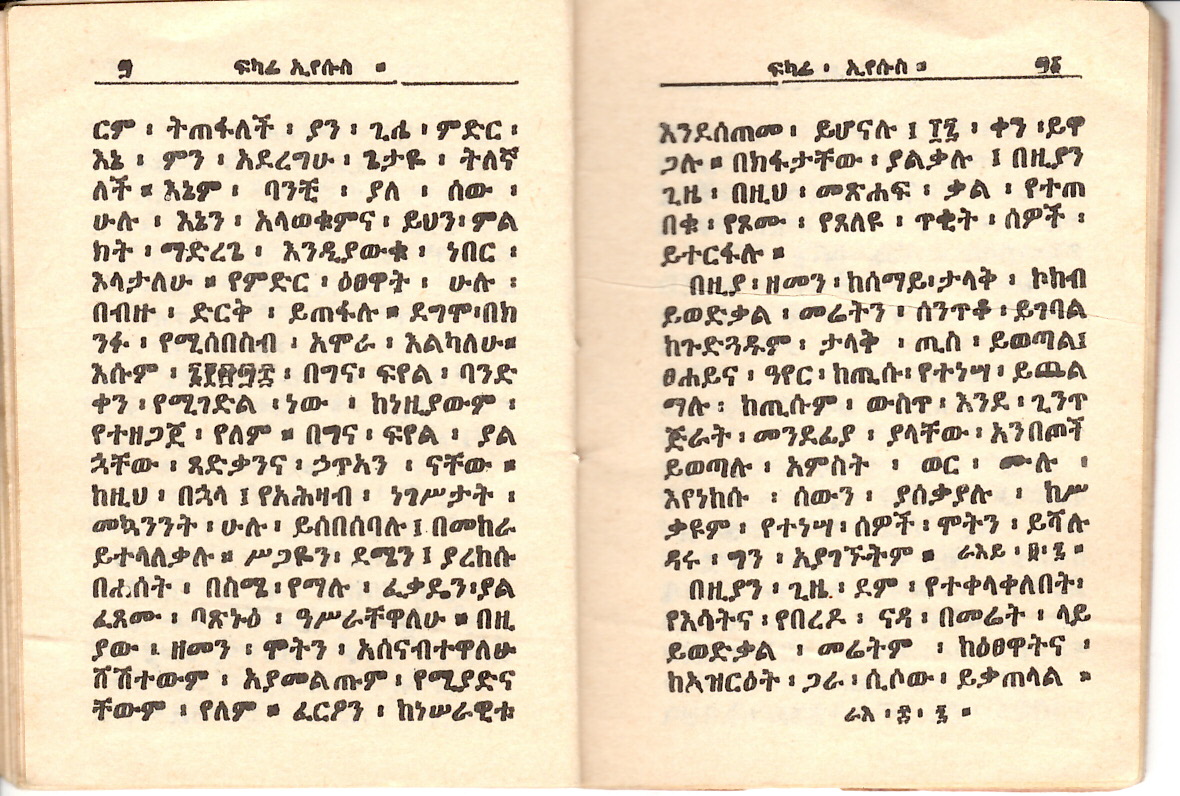 ፶ ፍካሬ ኢየሱስ ።
ርም ፡ ትጠፋለች ፡ ያን ፡ ጊዜ ፡ ምድር ፡
እኔ ፡ ምን ፡ አደረግሁ ፡ ጌታዬ ፡ ትለኛ
ለች ። እኔም ፡ ባንቺ ፡ ያለ ፡ ሰው ፡
ሁሉ ፡ እኔን ፡ አላወቁምና ፡ ይህን ፡ ምል
ክት ፡ ማድረጌ ፡ እንዲያውቁ ፡ ነበር ፡
እላታለሁ ። የምድር ፡ ዕፀዋት ፡ ሁሉ ፡
በብዙ ፡ ድርቅ ፡ ይጠፋሉ ። ደግሞ ፡ በክ
ንፉ ፡ የሚሰበስብ ፡ አሞራ ፡ እልካለሁ።
እሱም ፡ በግና ፡ ፍየል ፡ ባንድ
ቀን ፡ የሚገድል ፡ ነው ፡ ከነዚያውም ፡
የተዘጋጀ ፡ የለም ። በግና ፡ ፍየል ፡ ያል
ኋቸው ፡ ጻድቃንና ፡ ኃጥኣን ፡ ናቸው ።
ከዚህ ፡ በኋላ ፤ የአሕዛብ ፡ ነገሥታት ፡
መኳንንት ፡ ሁሉ ፡ ይሰበሰባሉ ፤ በመከራ
ይተላለቃሉ ። ሥጋዬን ፡ ደሜን ፤ ያረከሱ
በሐሰት ፡ በስሜ ፡ የማሉ ፡ ፈቃዴን ፡ ያል
ፈጸሙ ፡ ባጽኑዕ ፡ ዓሥራቸዋለሁ ። በዚ
ያው ፡ ዘመን ፡ ሞትን ፡ አሰናብተዋለሁ
ሸሽተውም ፡ አያመልጡም ፡ የሚያድና
ቸውም ፡ የለም ። ፈርዖን ፡ ከነሠራዊቱ
ፍካሬ ፡ ኢየሱስ ። ፶፩
እንደሰጠመ ፡ ይሆናሉ ፤ ፲፯ ፡ ቀን ፡ ይዋ
ጋሉ ። በክፋታቸው ፡ ያልቃሉ ፤ በዚያን
ጊዜ ፡ በዚህ ፡ መጽሐፍ ፡ ቃል ፡ የተጠ
በቁ ፡ የጾሙ ፡ የጸለዩ ፡ ጥቂት ፡ ሰዎች ፡
ይተርፋሉ ።
በዚያ ፡ ዘመን ፡ ከሰማይ ፡ ታላቅ ፡ ኮከብ
ይወድቃል ፡ መሬትን ፡ ሰንጥቆ ፡ ይገባል
ከጉድጓዱም ፡ ታላቅ ፡ ጢስ ፡ ይወጣል፤
ፀሐይና ፡ ዓየር ፡ ከጢሱ ፡ የተነሣ ፡ ይጨል
ማሉ ፡ ከጢሱም ፡ ውስጥ ፡ እንደ ፡ ጊንጥ
ጅራት ፡ መንደፊያ ፡ ያላቸው ፡ አንበጦች
ይወጣሉ ፡ አምስት ፡ ወር ፡ ሙሉ ፡
እየነከሱ ፡ ሰውን ፡ ያሰቃያሉ ፡ ከሥ
ቃዩም ፡ የተነሣ ፡ ሰዎች ፡ ሞትን ፡ ይሻሉ
ዳሩ ፡ ግን ፡ አያገኙትም ። ራእይ ፡ ፱ ፡ ፮ ።
በዚያን ፡ ጊዜ ፡ ደም ፡ የተቀላቀለበት፡
የእሳትና ፡ የበረዶ ፡ ናዳ ፡ በመሬት ፡ ላይ
ይወድቃል ፡ መሬትም ፡ ከዕፀዋትና ፡
ከኣዝርዕት ፡ ጋራ ፡ ሲሶው ፡ ይቃጠላል ።
ራእ ፡ ፰ ፡ ፯ ።